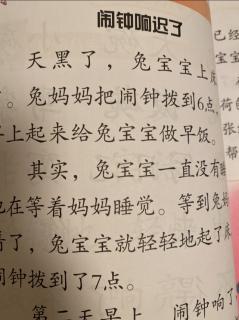 闹钟响迟了
天黑了，兔宝宝上床
。兔妈妈把闹钟拨到6点，
早上起来给兔宝宝做早饭。
其实，兔宝宝一直没有睡
他在等着妈妈睡觉。等到兔妈
着了，兔宝宝就轻轻地起了床
闹钟拨到了7点。
第二天早上，闹钟响了
已经
宝宝
荷
张
帮